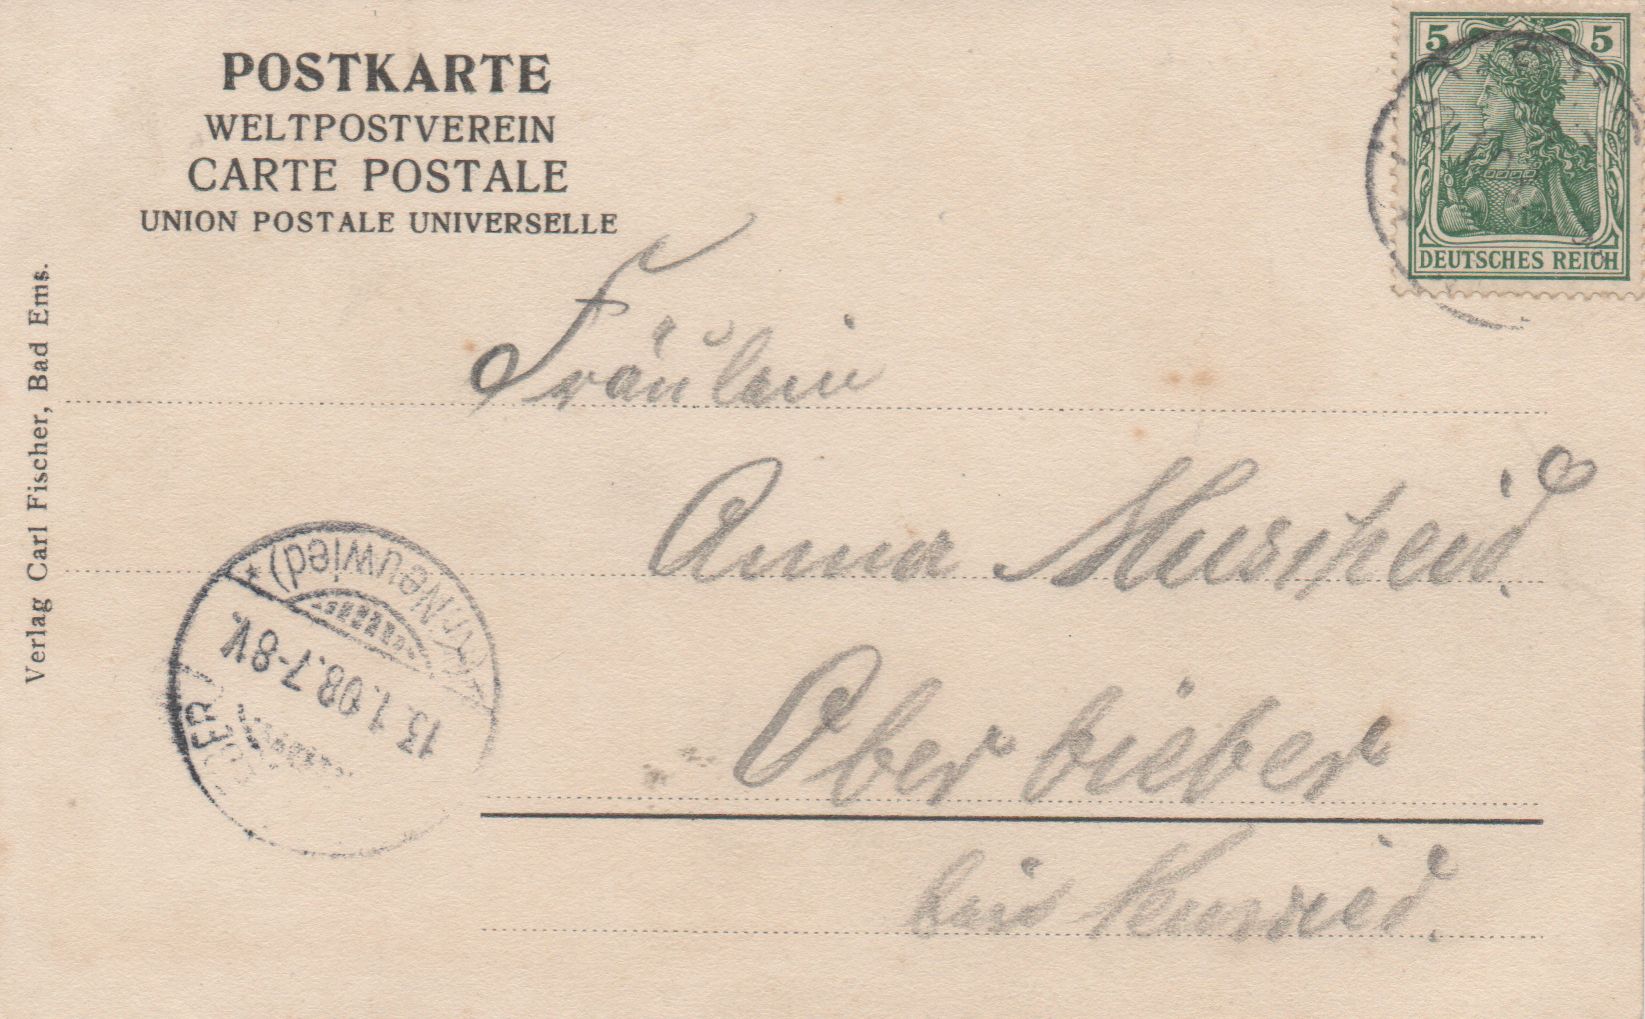 POSTKARTE
WELTPOSTVEREIN
CARTE POSTALE
UNION POSTALE UNIVERSELLE
5 5
DEUTSCHES REICH
Verlag Carl Fischer, Bad Ems.
Fräulein
Anna Muscheid.
(Kr. Neuwied)
13.1.08.7-8V.
Oberbieber
Neuwied.